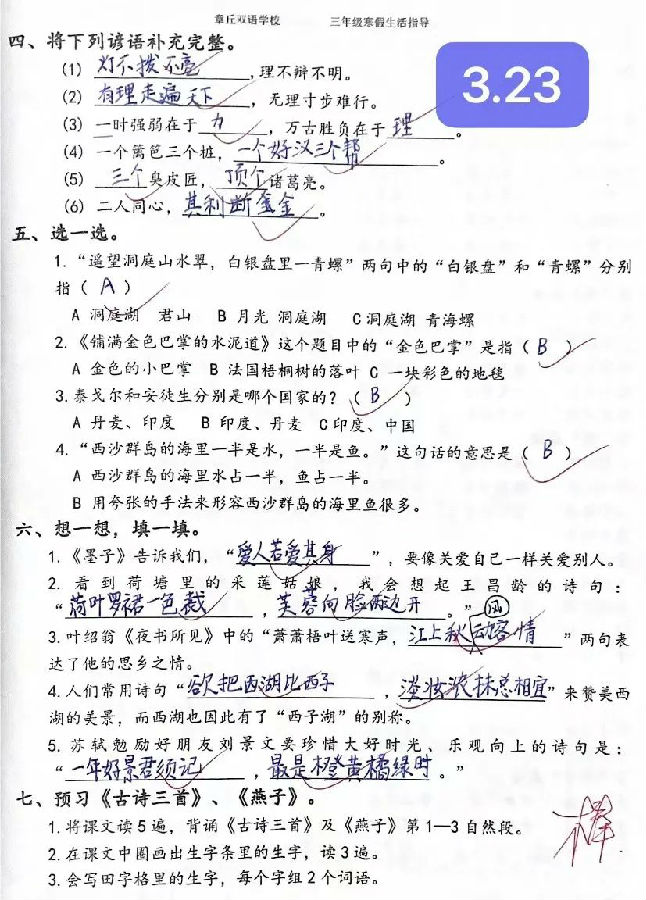 章丘双语学校 三年级寒假生活指导
3.23
四、将下列谚语补充完整。
(1) 灯不拨不亮,理不辩不明。
(2) 有理走遍天下,无理寸步难行。
(3) 一时强弱在于力,万古胜负在于理。
(4) 一个篱笆三个桩,一个好汉三个帮。
(5) 三个臭皮匠,顶个诸葛亮。
(6) 二人同心,其利断金。
五、选一选。
1.“遥望洞庭山水翠,白银盘里一青螺”两句中的“白银盘”和“青螺”分别
指( A )
A 洞庭湖 君山 B 月光 洞庭湖 C洞庭湖 青海螺
2.《铺满金色巴掌的水泥道》这个题目中的“金色巴掌”是指( B )
A 金色的小巴掌 B 法国梧桐树的落叶 C 一块彩色的地毯
3.泰戈尔和安徒生分别是哪个国家的?( B )
A 丹麦、印度 B 印度、丹麦 C印度、中国
4.“西沙群岛的海里一半是水,一半是鱼。”这句话的意思是( B )
A 西沙群岛的海里水占一半,鱼占一半。
B 用夸张的手法来形容西沙群岛的海里鱼很多。
六、想一想,填一填。
1.《墨子》告诉我们,“爱人若爱其身”,要像关爱自己一样关爱别人。
2.看到荷塘里的采莲姑娘,我会想起王昌龄的诗句:
“荷叶罗裙一色裁,芙蓉向脸两边开。”
3.叶绍翁《夜书所见》中的“萧萧梧叶送寒声,江上秋风动客情”两句表
达了他的思乡之情。
4.人们常用诗句“欲把西湖比西子,淡妆浓抹总相宜”来赞美西
湖的美景,而西湖也因此有了“西子湖”的别称。
5.苏轼勉励好朋友刘景文要珍惜大好时光、乐观向上的诗句是:
“一年好景君须记,最是橙黄橘绿时。”
七、预习《古诗三首》、《燕子》。
1.将课文读5遍,背诵《古诗三首》及《燕子》第1—3自然段。
2.在课文中圈画出生字条里的生字,读3遍。
3.会写田字格里的生字,每个字组2个词语。
棒